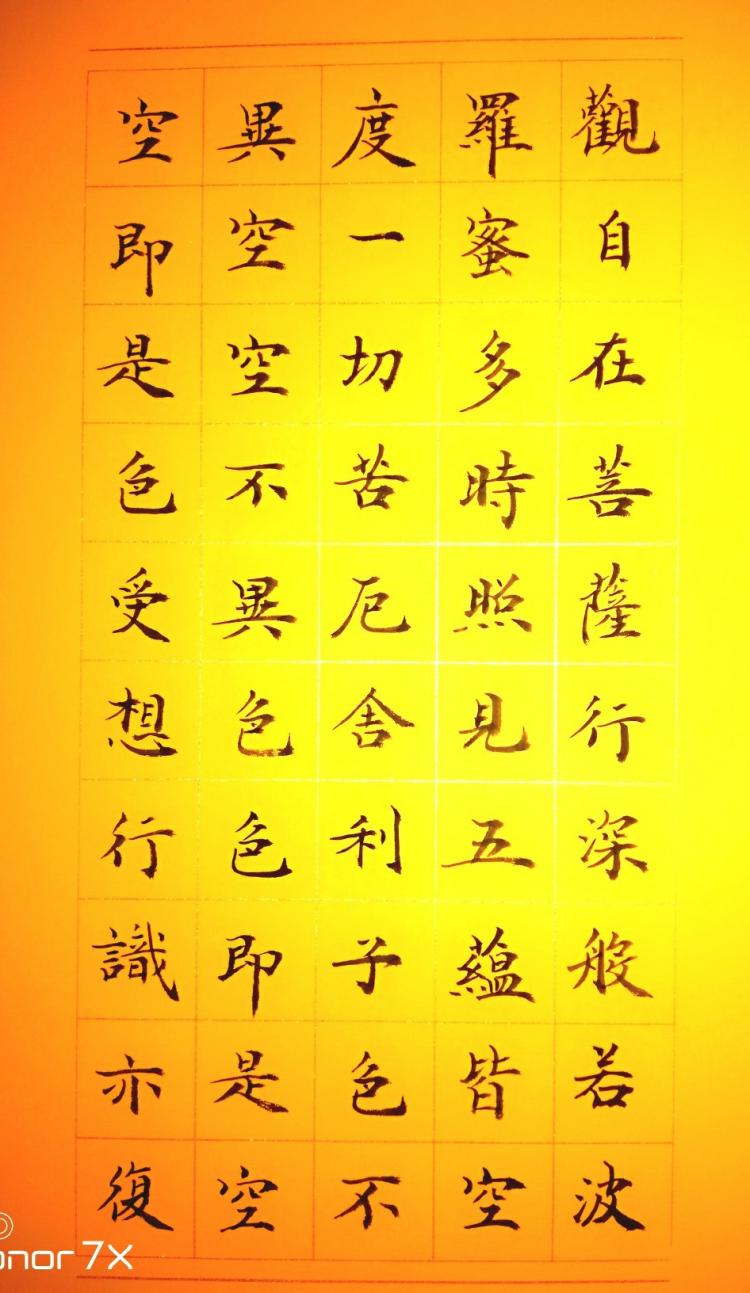 觀自在菩薩行深般若波
羅蜜多時照見五蘊皆空
度一切苦厄舍利子色不
異空空不異色色即是空
空即是色受想行識亦復
onor 7X